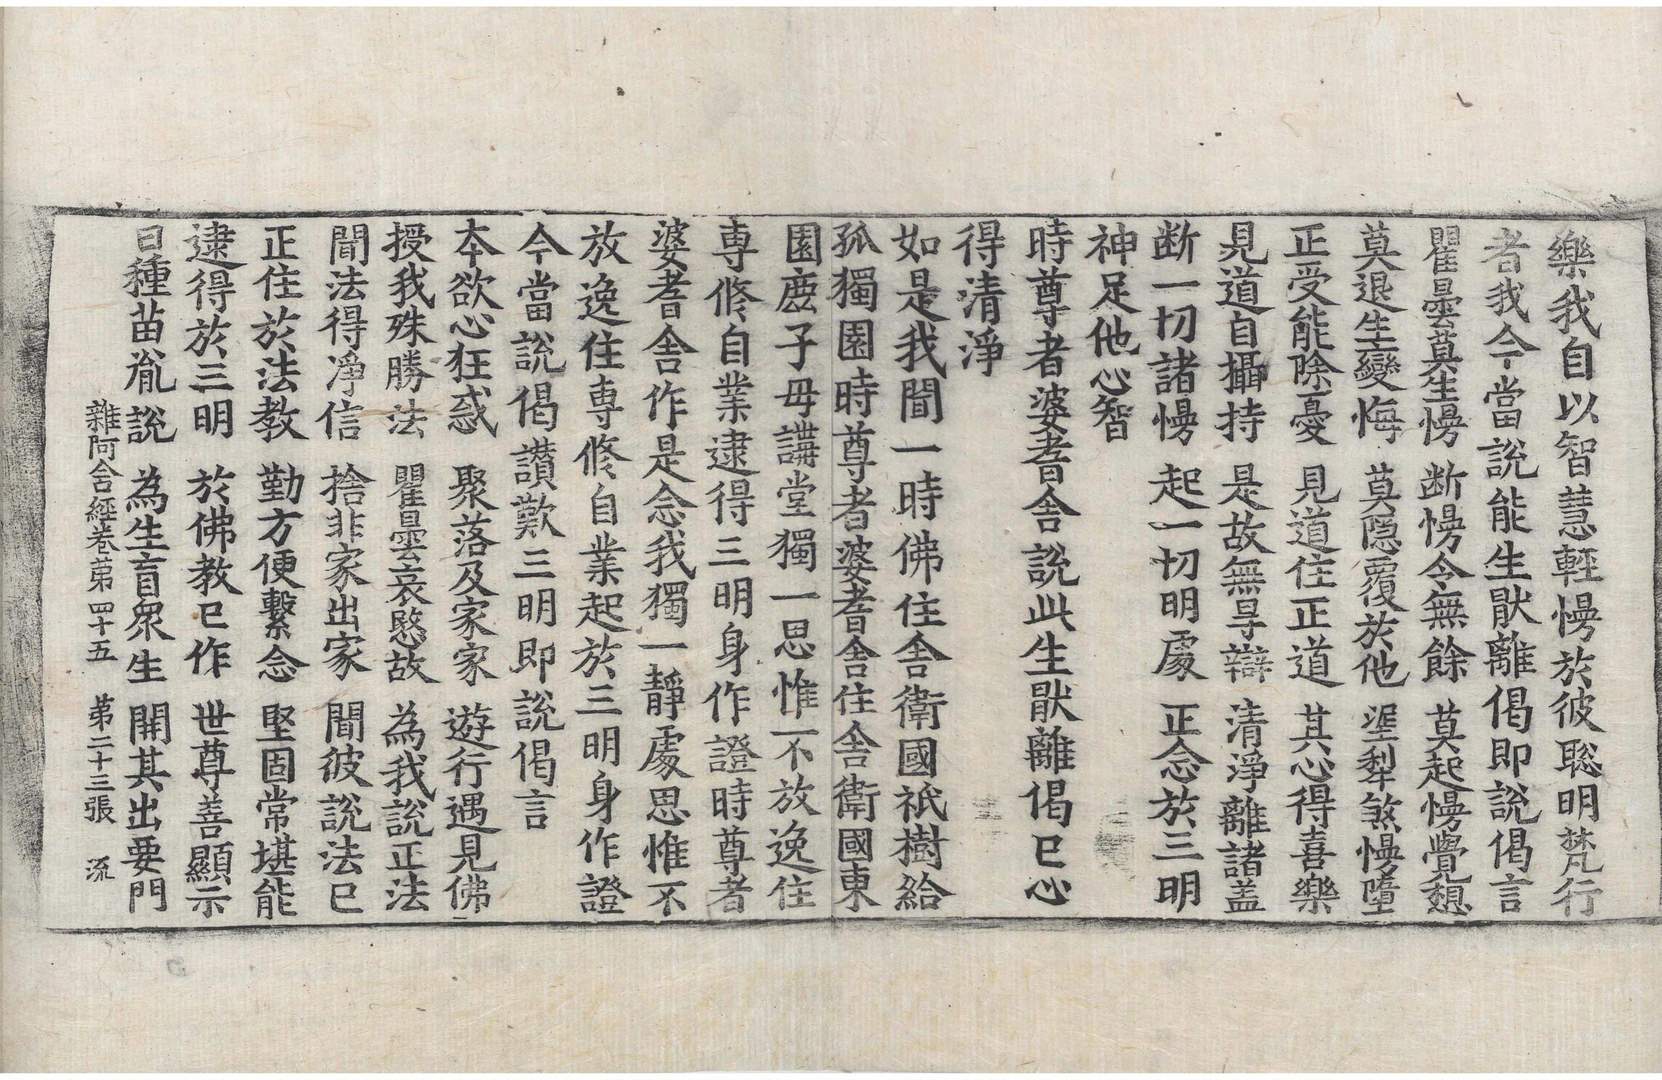 樂我自以智慧輕慢於彼聡明梵行
者我今當說能生猒離偈即說偈言
瞿曇莫生慢 断慢令無餘 莫起慢覺想
莫退生變悔 莫隐覆於他 埿犁煞慢墮
正受能除憂 見道住正道 其心得喜樂
見道自攝持 是故無㝵辯 清淨離諸盖
断一切諸慢 起一切明處 正念於三明
神足他心智
時尊者婆耆舎說此生猒離偈已心
得清淨
如是我聞一時佛住舎衛國祇樹給
孤獨園時尊者婆耆舎住舎衛國東
園鹿子母講堂獨一思惟不放逸住
専修自業逮得三明身作證時尊者
婆耆舎作是念我獨一靜處思惟不
放逸住専修自業起於三明身作證
今當說偈讃歎三明即說偈言
本欲心狂惑 聚落及家家 遊行遇見佛
授我殊勝法 瞿曇哀愍故 為我說正法
聞法得淨信 捨非家出家 聞彼說法已
正住於法教 勤方便繫念 堅固常堪能
逮得於三明 於佛教已作 世尊善顯示
日種苗胤說 為生盲眾生 開其出要門
雜阿含經卷苐四十五 苐二十三張 流